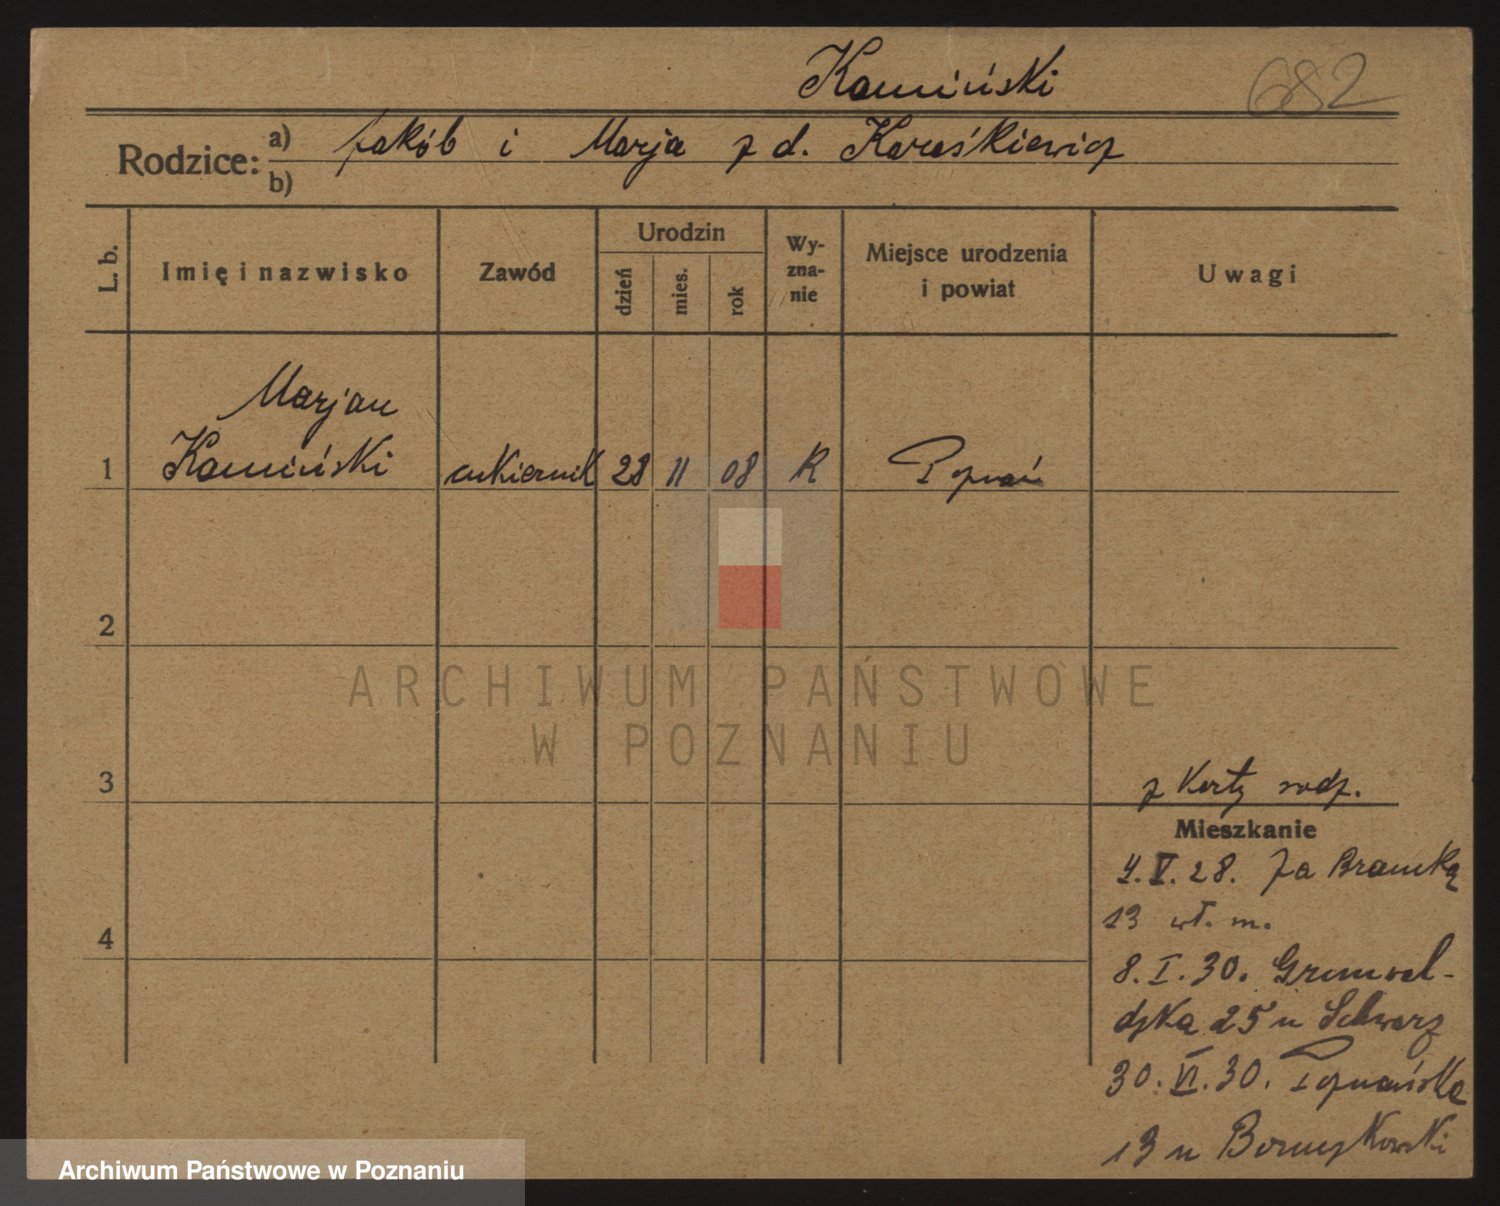 Kamiński
682
Rodzice: a) Jakób i Marja z d. Karaśkiewicz
b)
L. b.
Imię i nazwisko
Zawód
Urodzin
dzień
mies.
rok
Wy-
zna-
nie
Miejsce urodzenia
i powiat
Uwagi
Marjan
1 Kamiński cukiernik 28 11 08 R Poznań
2
ARCHIWUM PAŃSTWOWE
W POZNANIU
3
z karty rodz.
Mieszkanie
4
4.V.28. Za Bramką
13 wł. m.
8.I.30. Grunwal-
dzka 25 u Schwarz
30.VI.30. Poznańska
13 u
Archiwum Państwowe w Poznaniu